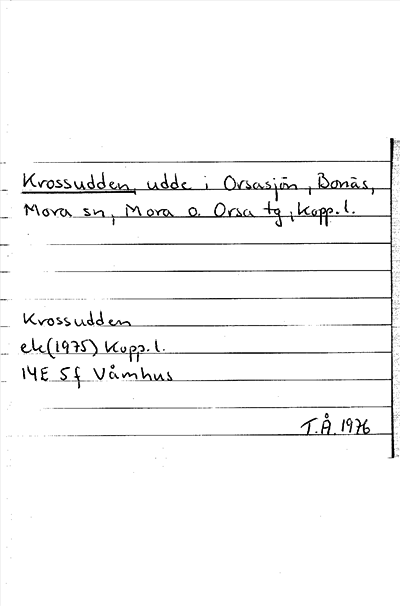 Krossudden, udde i Orsasjön, Bonäs,
Mora sn, Mora o. Orsa tg, Kopp.l.
Krossudden
ek(1975) Kopp.l.
14E 5f Våmhus
T.Å. 1976